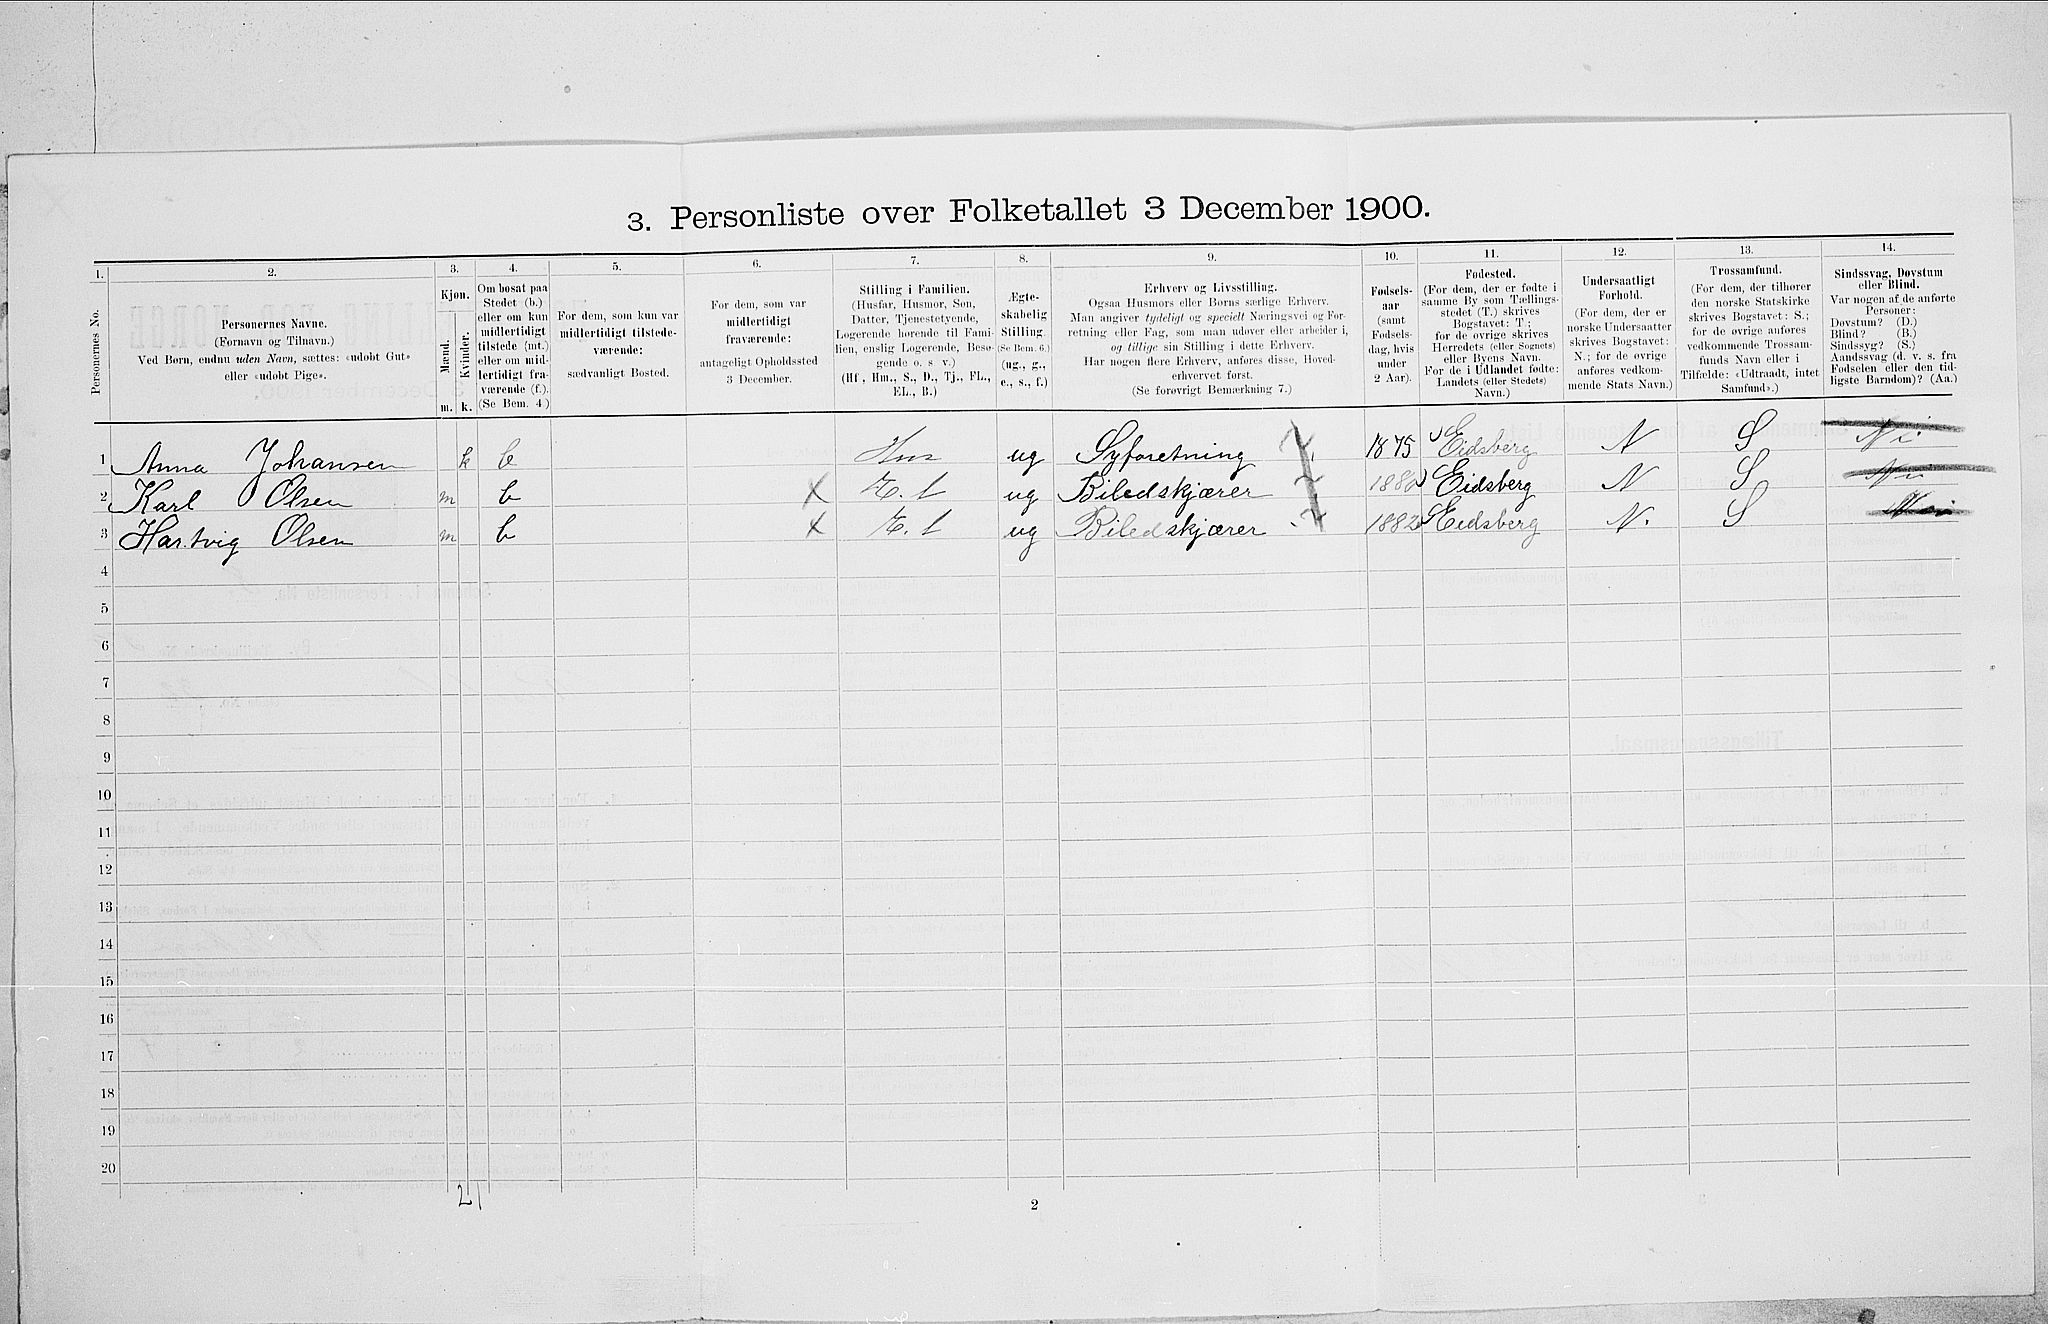 3. Personliste over Folketallet 3 December 1900.
1. 2. 3. 4. 5. 6. 7. 8. 9. 10. 11. 12. 13. 14.
Personernes No.
Personernes Navne.
(Fornavn og Tilnavn.)
Ved Børn, endnu uden Navn, sættes: «udøbt Gut»
eller «udøbt Pige».
Kjøn.
Mænd.
Kvinder.
m. k.
Om bosat paa
Stedet (b.)
eller om kun
midlertidigt
tilstede (mt.)
eller om mid-
lertidigt fra-
værende (f.).
(Se Bem. 4.)
For dem, som kun var
midlertidigt tilstede-
værende:
sædvanligt Bosted.
For dem, som var
midlertidigt
fraværende:
antageligt Opholdssted
3 December.
Stilling i Familien.
(Husfar, Husmor, Søn,
Datter, Tjenestetyende,
Logerende hørende til Fami-
lien, enslig Logerende, Besø-
gende o. s. v.)
(Hf., Hm., S., D., Tj., FL.,
EL., B.)
Ægte-
skabelig
Stilling.
(Se Bem. 6.)
(ug., g.,
e., s., f.)
Erhverv og Livsstilling.
Ogsaa Husmors eller Børns særlige Erhverv.
Man angiver tydeligt og specielt Næringsvei og For-
retning eller Fag, som man udøver eller arbeider i,
og tillige sin Stilling i dette Erhverv.
Har nogen flere Erhverv, anføres disse, Hoved-
erhvervet først.
(Se forøvrigt Bemærkning 7.)
Fødsels-
aar
(samt
Fødsels-
dag, hvis
under
2 Aar).
Fødested.
(For dem, der er fødte i
samme By som Tællings-
stedet (T.) skrives
Bogstavet: T.;
for de øvrige skrives
Herredets (eller Sognets)
eller Byens Navn.
For de i Udlandet fødte:
Landets (eller Stedets)
Navn.)
Undersaatligt
Forhold.
(For dem, der er
norske Undersaatter
skrives Bogstavet:
N.; for de øvrige
anføres vedkom-
mende Stats Navn.)
Trossamfund.
(For dem, der tilhører
den norske Statskirke
skrives Bogstavet: S.;
for de øvrige anføres
vedkommende Trossam-
funds Navn eller i
Tilfælde: «Udtraadt, intet
Samfund».)
Sindssvag, Døvstum
eller Blind.
Var nogen af de anførte
Personer:
Døvstum? (D.)
Blind? (B.)
Sindssyg? (S.)
Aandssvag (d. v. s. fra
Fødselen eller den tid-
ligste Barndom)? (Aa.)
1 Anna Johansen k b ug Syforetning 1875 Eidsberg N S
2 Karl Olsen m b X E. l ug Biledskjærer Eidsberg N S
3 Hartvig Olsen m b X E. l ug Biledskjærer 1882 Eidsberg N. S
4
5
6
7
8
9
10
11
12
13
14
15
16
17
18
19
20
2 1
2